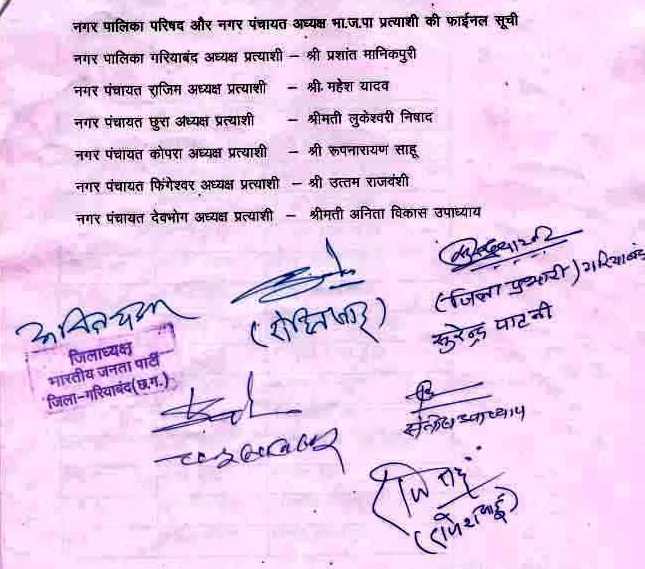 नगर पालिका परिषद और नगर पंचायत अध्यक्ष भा.ज.पा प्रत्याशी की फाईनल सूची
नगर पालिका गरियाबंद अध्यक्ष प्रत्याशी – श्री प्रशांत मानिकपुरी
नगर पंचायत राजिम अध्यक्ष प्रत्याशी – श्री महेश यादव
नगर पंचायत छुरा अध्यक्ष प्रत्याशी – श्रीमती लुकेश्वरी निषाद
नगर पंचायत कोपरा अध्यक्ष प्रत्याशी – श्री रूपनारायण साहू
नगर पंचायत फिंगेश्वर अध्यक्ष प्रत्याशी – श्री उत्तम राजवंशी
नगर पंचायत देवभोग अध्यक्ष प्रत्याशी – श्रीमती अनिता विकास उपाध्याय
(जिला प्रभारी) गरियाबंद
सुरेन्द्र पाटनी
जिलाध्यक्ष
भारतीय जनता पार्टी
जिला-गरियाबंद(छ.ग.)
(रोहित साहू)
उपाध्याय